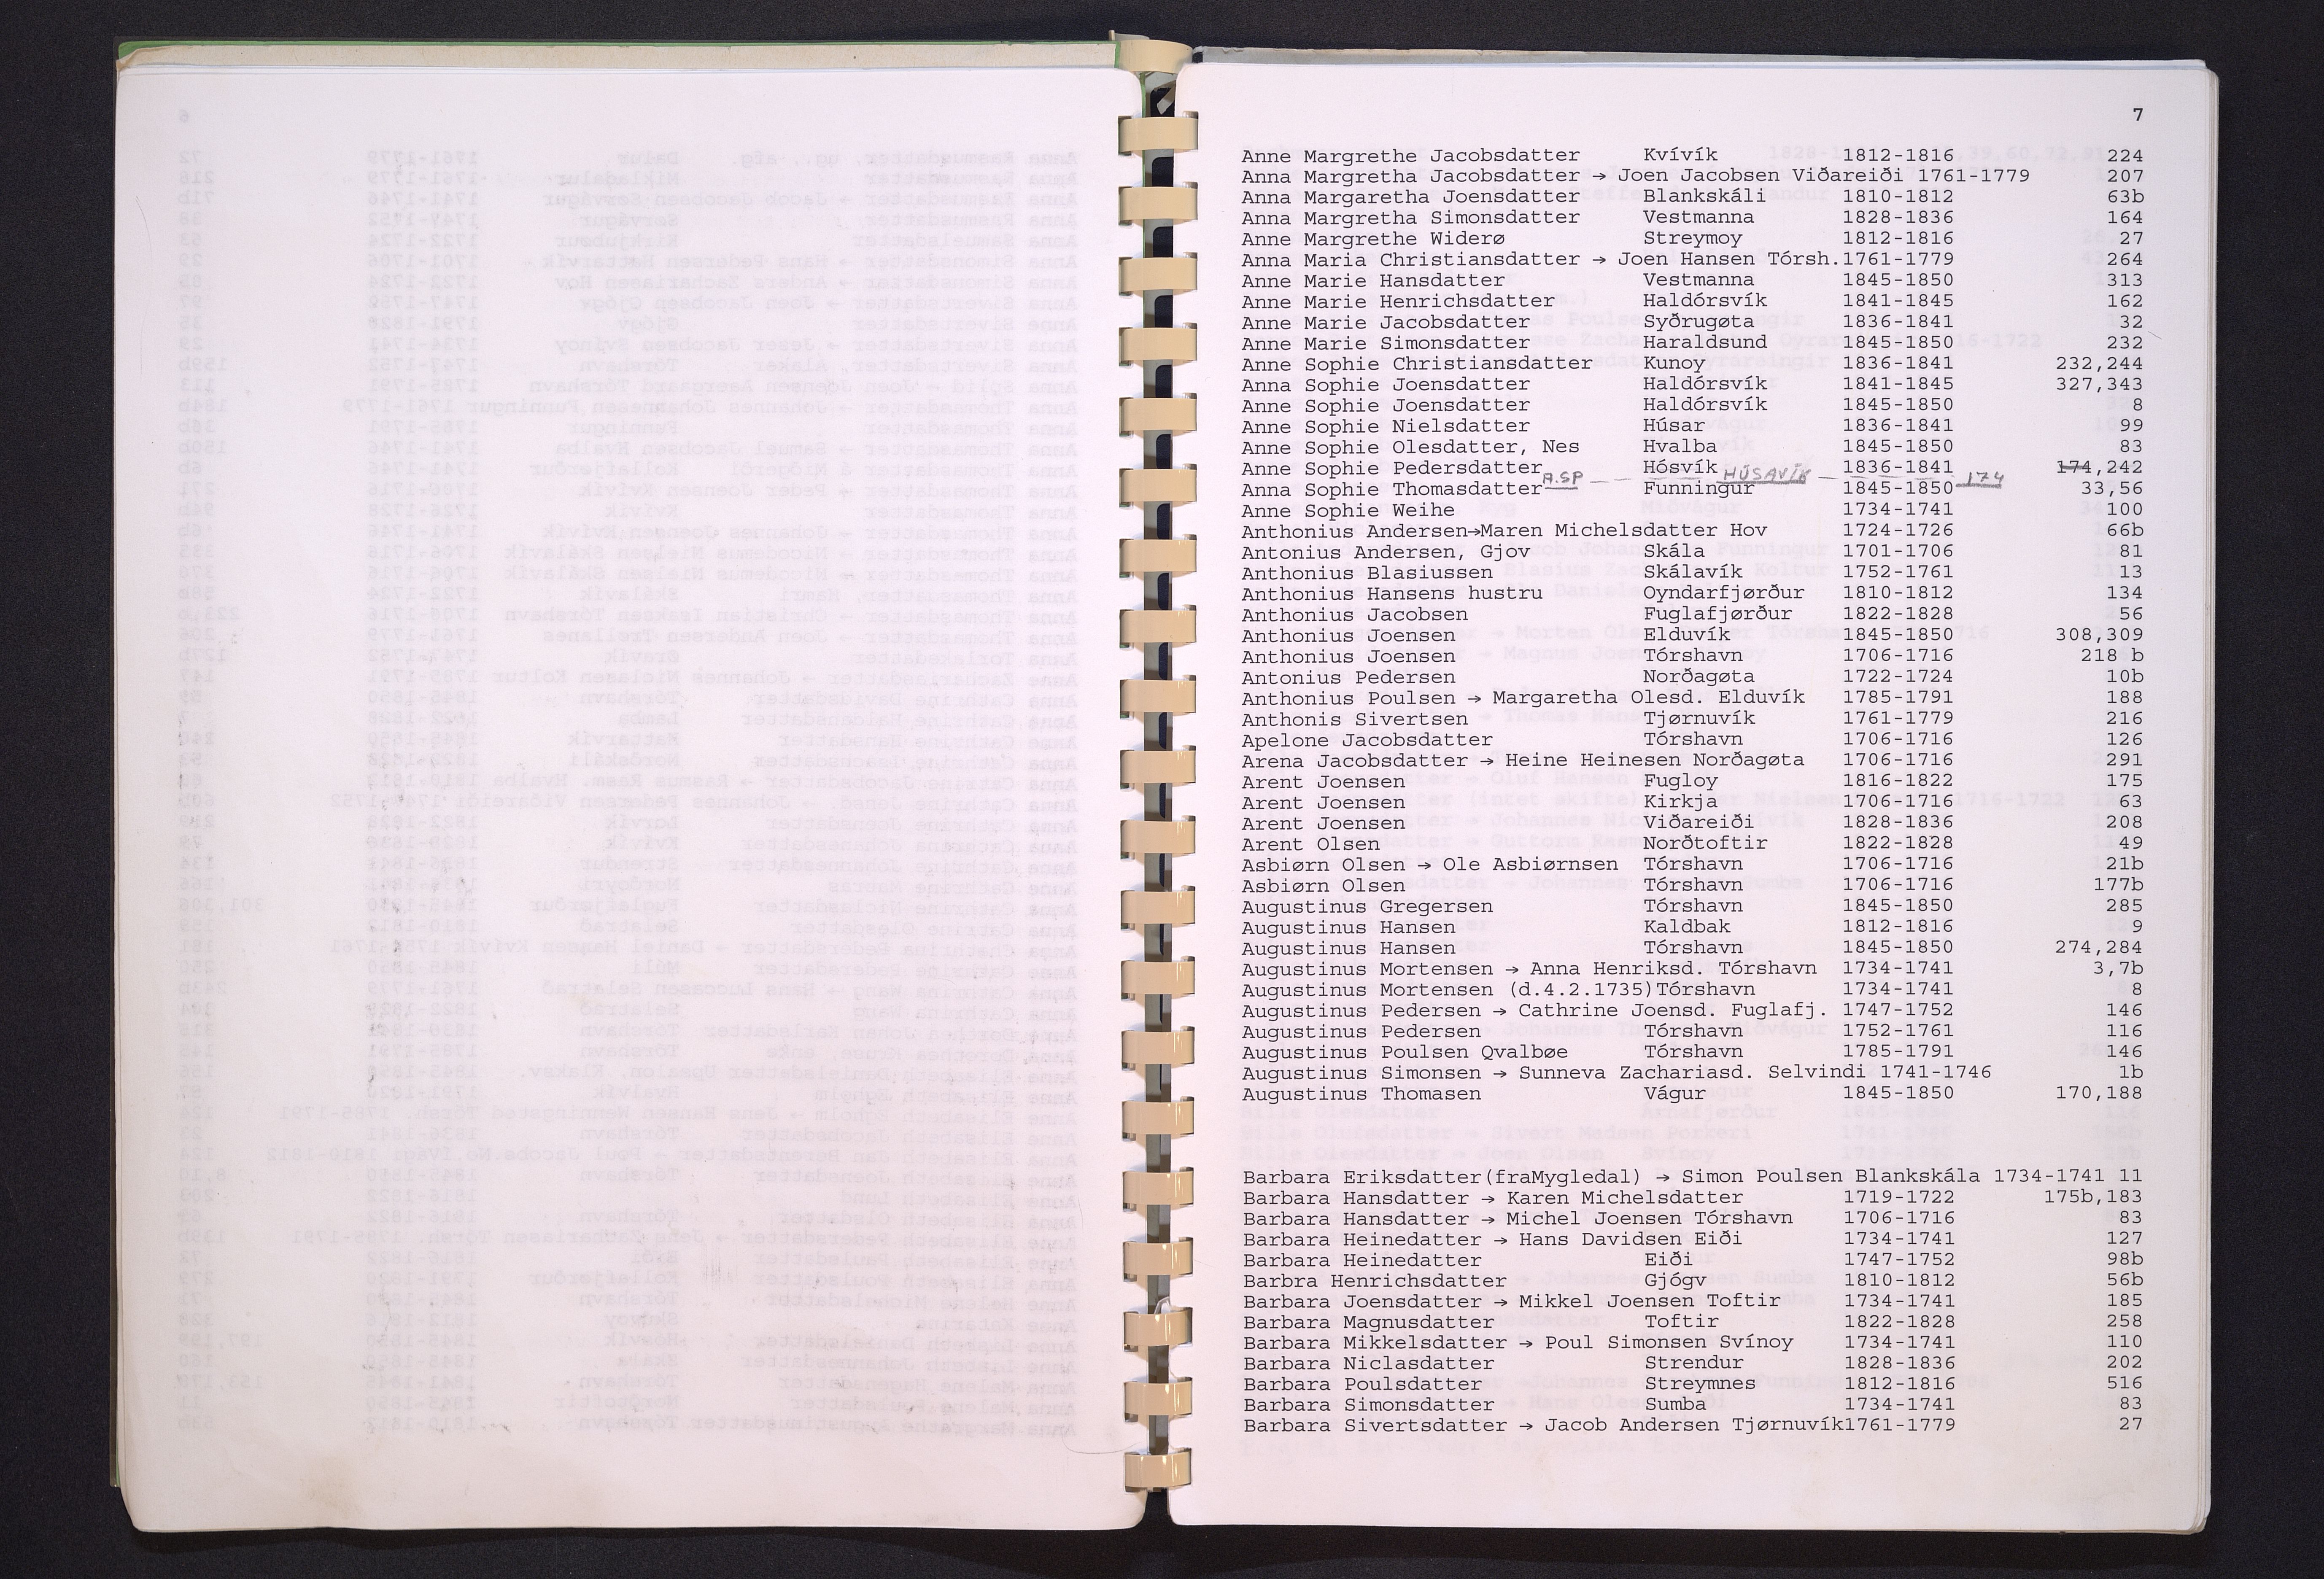 7
Anne Margrethe Jacobsdatter Kvívík 1812-1816 224
Anna Margretha Jacobsdatter → Joen Jacobsen Viðareiði 1761-1779 207
Anna Margaretha Joensdatter Blankskáli 1810-1812 63b
Anna Margretha Simonsdatter Vestmanna 1828-1836 164
Anne Margrethe Widerø Streymoy 1812-1816 27
Anna Maria Christiansdatter → Joen Hansen Tórsh.1761-1779 264
Anne Marie Hansdatter Vestmanna 1845-1850 313
Anne Marie Henrichsdatter Haldórsvík 1841-1845 162
Anne Marie Jacobsdatter Syðrugøta 1836-1841 32
Anne Marie Simonsdatter Haraldsund 1845-1850 232
Anne Sophie Christiansdatter Kunoy 1836-1841 232,244
Anna Sophie Joensdatter Haldórsvík 1841-1845 327,343
Anne Sophie Joensdatter Haldórsvík 1845-1850 8
Anne Sophie Nielsdatter Húsar 1836-1841 99
Anne Sophie Olesdatter, Nes Hvalba 1845-1850 83
Anne Sophie Pedersdatter Hósvík 1836-1841 174,242
A.SP — — HÚSAVÍK — — — 174
Anna Sophie Thomasdatter Funningur 1845-1850 33,56
Anne Sophie Weihe 1734-1741 100
Anthonius Andersen→Maren Michelsdatter Hov 1724-1726 66b
Antonius Andersen, Gjov Skála 1701-1706 81
Anthonius Blasiussen Skálavík 1752-1761 13
Anthonius Hansens hustru Oyndarfjørður 1810-1812 134
Anthonius Jacobsen Fuglafjørður 1822-1828 56
Anthonius Joensen Elduvík 1845-1850 308,309
Anthonius Joensen Tórshavn 1706-1716 218 b
Antonius Pedersen Norðagøta 1722-1724 10b
Anthonius Poulsen → Margaretha Olesd. Elduvík 1785-1791 188
Anthonis Sivertsen Tjørnuvík 1761-1779 216
Apelone Jacobsdatter Tórshavn 1706-1716 126
Arena Jacobsdatter → Heine Heinesen Norðagøta 1706-1716 291
Arent Joensen Fugloy 1816-1822 175
Arent Joensen Kirkja 1706-1716 63
Arent Joensen Viðareiði 1828-1836 208
Arent Olsen Norðtoftir 1822-1828 49
Asbiørn Olsen → Ole Asbiørnsen Tórshavn 1706-1716 21b
Asbiørn Olsen Tórshavn 1706-1716 177b
Augustinus Gregersen Tórshavn 1845-1850 285
Augustinus Hansen Kaldbak 1812-1816 9
Augustinus Hansen Tórshavn 1845-1850 274,284
Augustinus Mortensen → Anna Henriksd. Tórshavn 1734-1741 3,7b
Augustinus Mortensen (d.4.2.1735)Tórshavn 1734-1741 8
Augustinus Pedersen → Cathrine Joensd. Fuglafj. 1747-1752 146
Augustinus Pedersen Tórshavn 1752-1761 116
Augustinus Poulsen Qvalbøe Tórshavn 1785-1791 146
Augustinus Simonsen → Sunneva Zachariasd. Selvindi 1741-1746 1b
Augustinus Thomasen Vágur 1845-1850 170,188
Barbara Eriksdatter(fraMygledal) → Simon Poulsen Blankskála 1734-1741 11
Barbara Hansdatter → Karen Michelsdatter 1719-1722 175b,183
Barbara Hansdatter → Michel Joensen Tórshavn 1706-1716 83
Barbara Heinedatter → Hans Davidsen Eiði 1734-1741 127
Barbara Heinedatter Eiði 1747-1752 98b
Barbra Henrichsdatter Gjógv 1810-1812 56b
Barbara Joensdatter → Mikkel Joensen Toftir 1734-1741 185
Barbara Magnusdatter Toftir 1822-1828 258
Barbara Mikkelsdatter → Poul Simonsen Svínoy 1734-1741 110
Barbara Niclasdatter Strendur 1828-1836 202
Barbara Poulsdatter Streymnes 1812-1816 516
Barbara Simonsdatter Sumba 1734-1741 83
Barbara Sivertsdatter → Jacob Andersen Tjørnuvík1761-1779 27